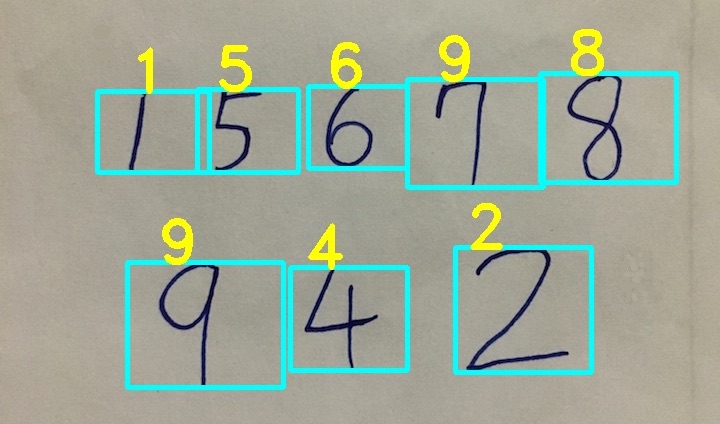 1 5 6 9 8
1 5 6 7 8
9 4 2
9 4 2